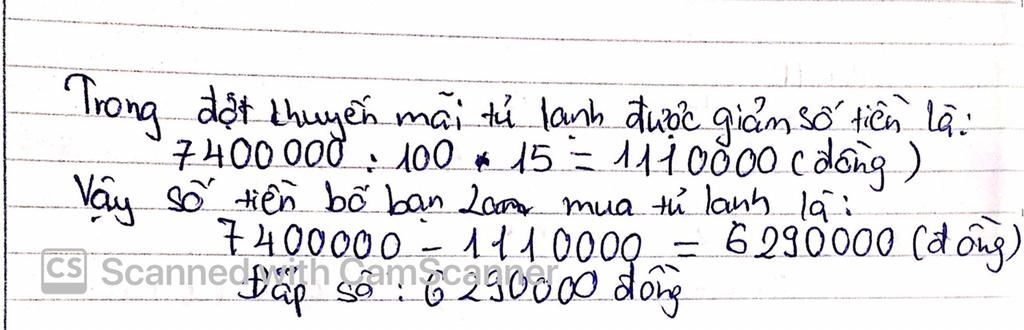 Trong dợt khuyến mãi tủ lạnh được giảm số tiền là:
7400000 : 100 * 15 = 1110000 (đồng)
Vậy số tiền bố bạn Lam mua tủ lạnh là:
7400000 - 1110000 = 6290000 (đồng)
CS Scanned with CamScanner
Đáp số : 6290000 đồng